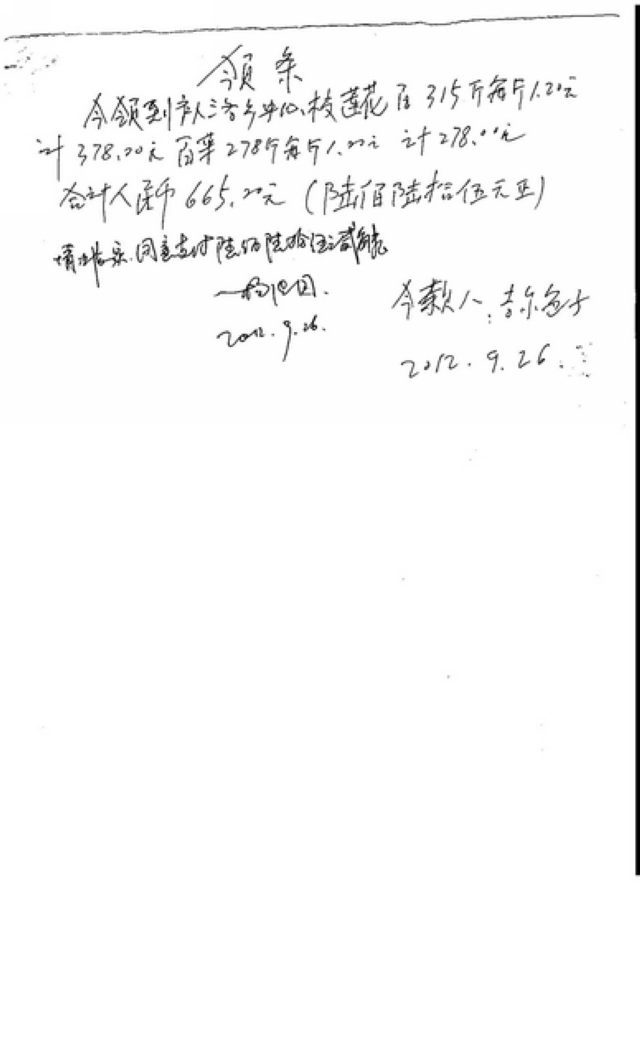 领条
今领到 中心校莲花百 315斤每斤1.20元
计378.00元 百菜278斤每斤1.00元 计278.00元
合计人民币665.00元（陆佰陆拾伍元正）
同意支付陆佰陆拾伍元
2012.9.26.
今款人：吉尔
2012.9.26.